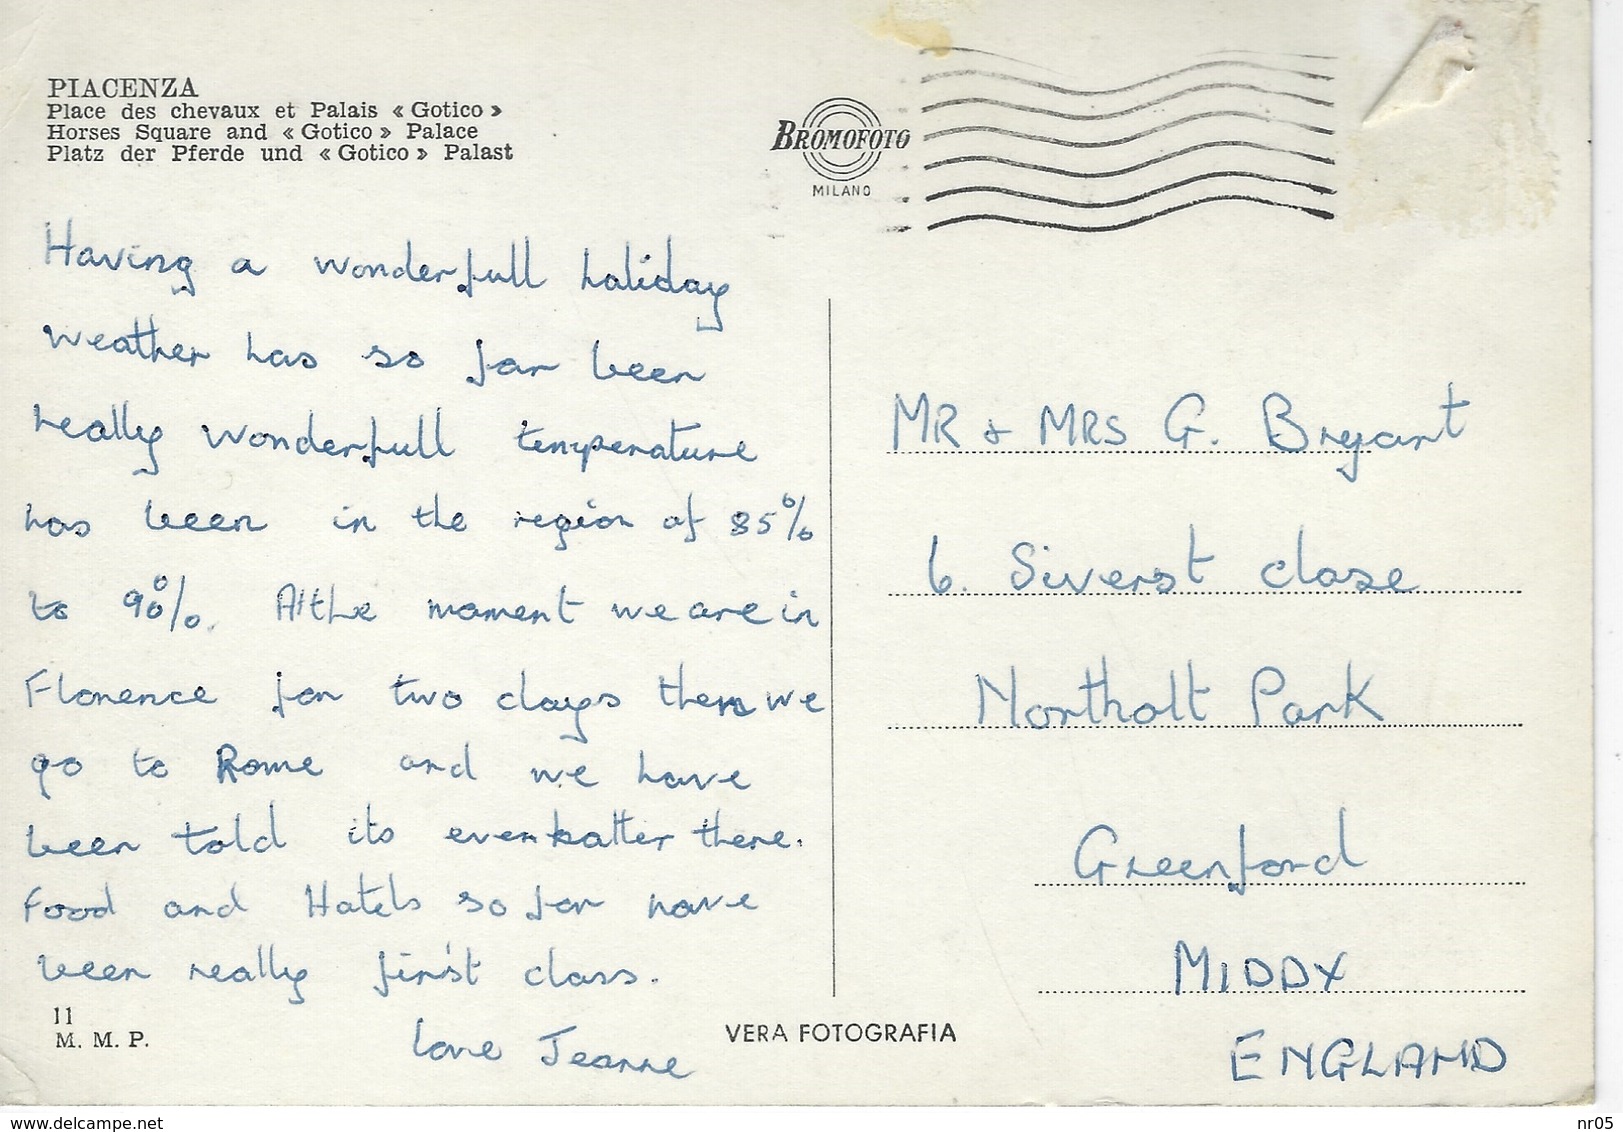 PIACENZA
Place des chevaux et Palais « Gotico »
Horses Square and « Gotico » Palace
Platz der Pferde und « Gotico » Palast
BROMOFOTO
MILANO
Having a wonderfull holiday
weather has so far been
really wonderfull temperature
has been in the region of 85%
to 90%. At the moment we are in
Florence for two days then we
go to Rome and we have
been told its even better there.
Food and Hotels so far have
been really first class.
Love Jeanne
11
M. M. P.
VERA FOTOGRAFIA
MR & MRS G. Bryant
6. Siverst close
Northolt Park
Greenford
MIDDX
ENGLAND
www.delcampe.net
nr05